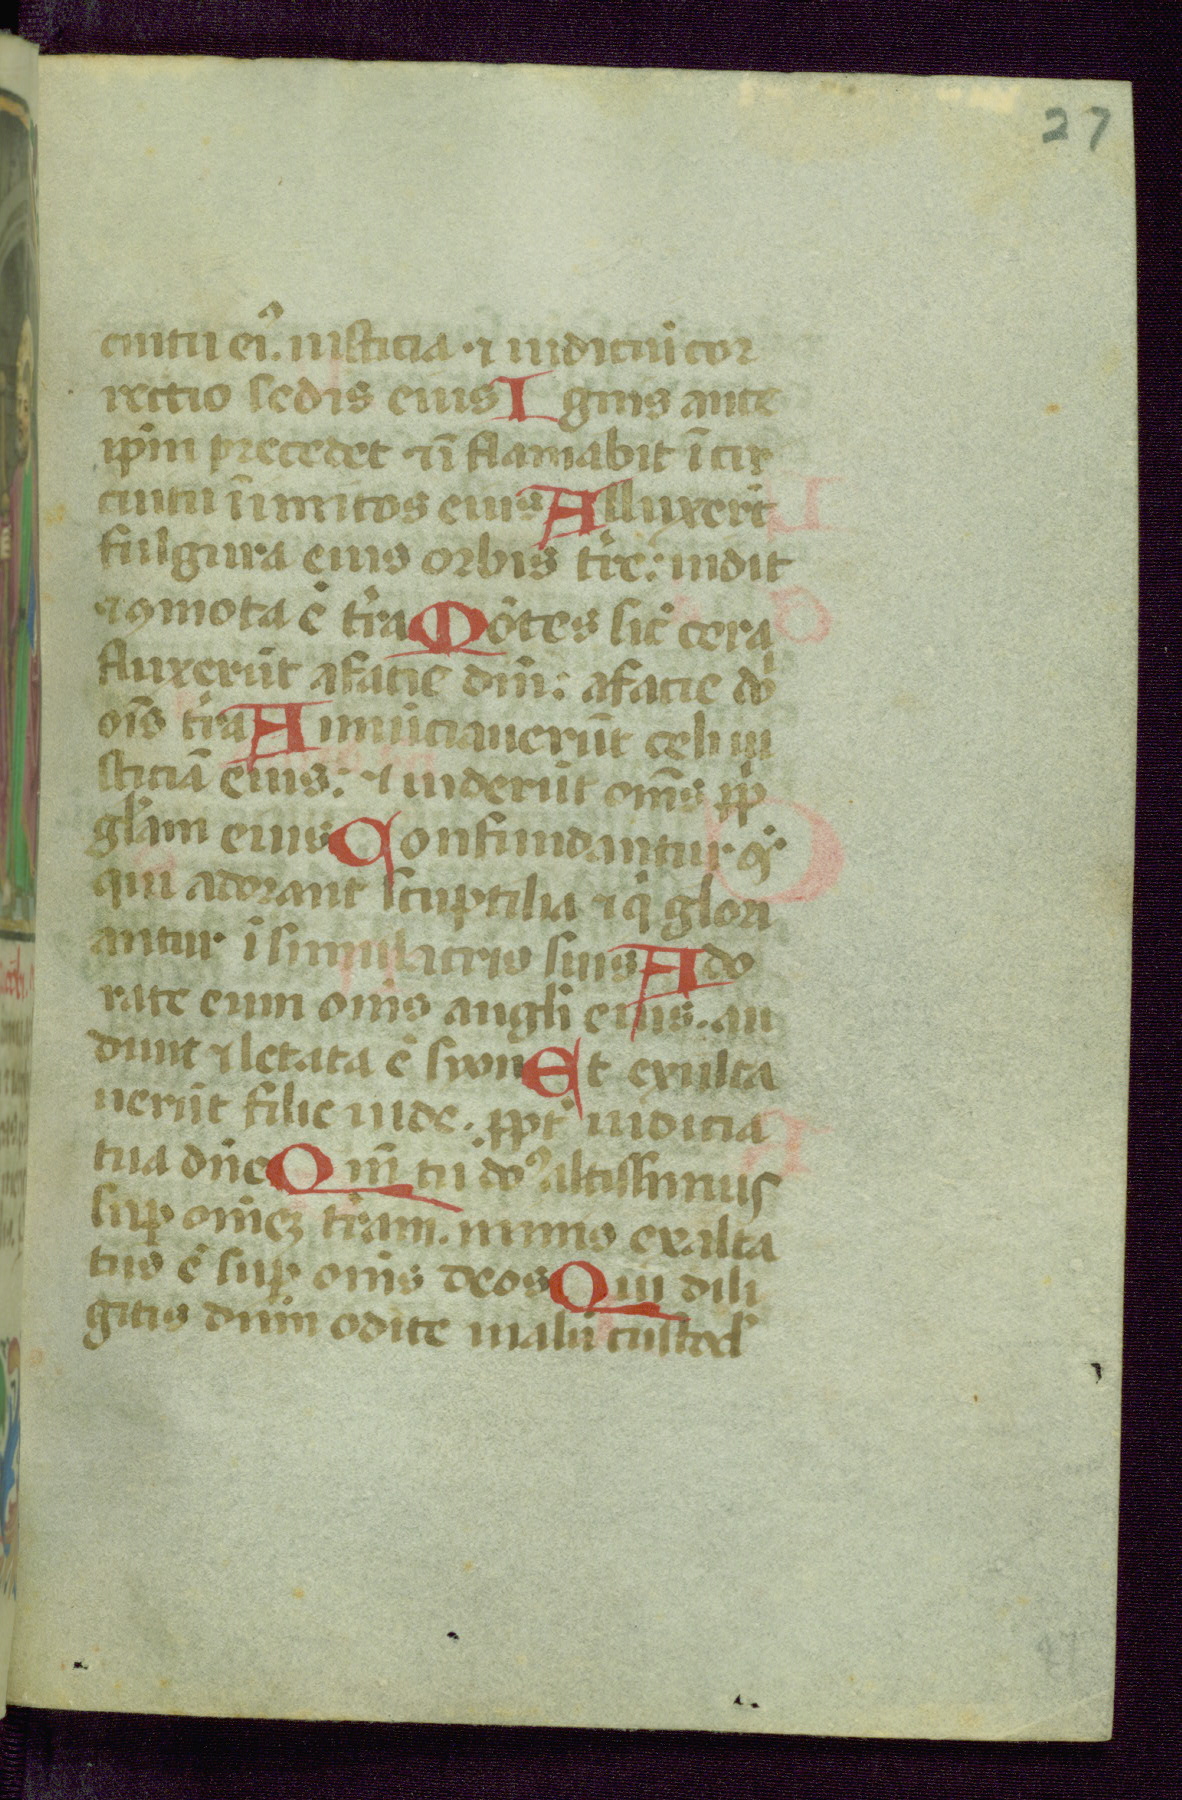 27
cuitu eiꝰ. iusticia ⁊ iudiciū cor
rectio sedis eius Ignis ante
ip̄m precedet ⁊ ī flamabit ī cir
cuitu īimicos eius Alluxerūt
fulgura eius orbis tr̄e: uidit
⁊ ꝯmota ē tr̄a Mōtes sic̄ cera
fluxerūt a facie dn̄i: a facie dn̄i
oīs tr̄a Annūciauerūt celi iu
sticiā eius: ⁊ uiderūt om̄s ppl̄i
gl̄am eius Confundantur oēs
qui adorant sculptilia ⁊ q̄ glori
antur ī simulacris suis Ado
rate eum om̄s angl̄i eius. au
diuit ⁊ letata ē syon Et exulta
uerūt filie iude. ꝓpt̄ iudicia
tua dn̄e Qm̄ tu dn̄s altissimus
suꝑ om̄eꝫ tr̄am. nimis exalta
tus ē suꝑ om̄s deos Qui dili
gitis dn̄m odite malū custod̄